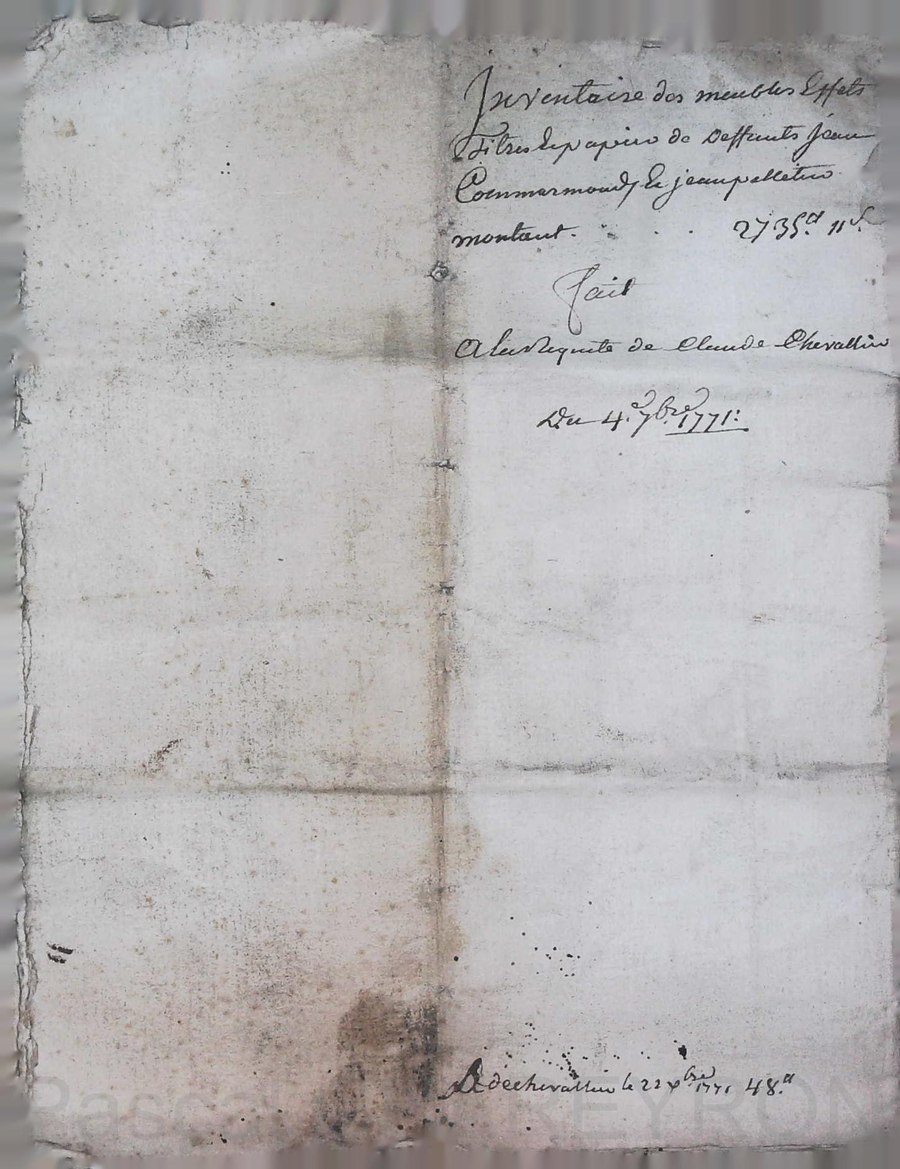 Inventaire des meubles Effets
Titres Et papiers de Deffunts Jean
Commarmond, Et jean pelletier
montant . . . . 2735.tt 11s.
fait
A la Requete de Claude Chevallier
Du 4.e 7bre 1771:
de chevallier le 22 xbre 1771 48.tt